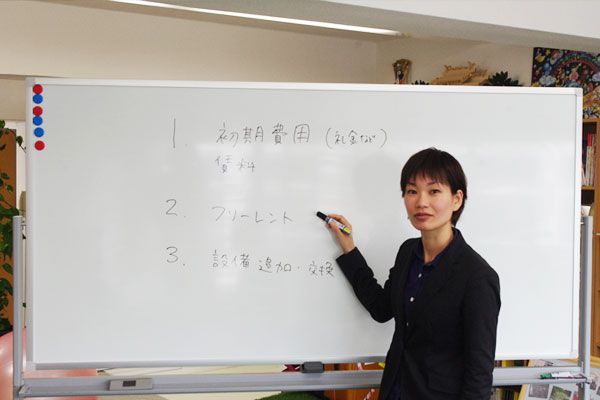 1. 初期費用（礼金など）
賃料
2. フリーレント
3. 設備 追加・交換